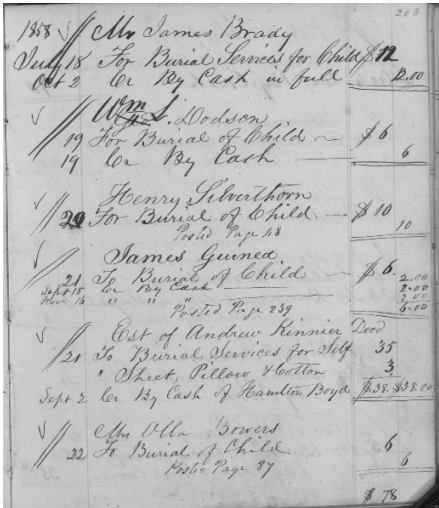 203
1858 Mr James Brady
July 18 For Burial Services for Child $12
Oct 2 Cr By Cash in full 12.00
Wm L. Dodson
19 For Burial of Child $6
19 Cr By Cash 6
Henry Silverthorn
20 For Burial of Child $10
Posted Page 48 10
James Guinea
21 To Burial of Child $6. 2.00
Sept 15 Cr By Cash 2.00
Nov 16 " " " 2.00
Posted Page 239 6.00
Est of Andrew Kinnier Decd
21 To Burial Services for Self 35
" Sheet, Pillow & Cotton 3
Sept 2 Cr By Cash of Hamilton Boyd $38. $38.00
Mrs Olla Bowers
22 To Burial of Child 6
Posted Page 87 6
$78